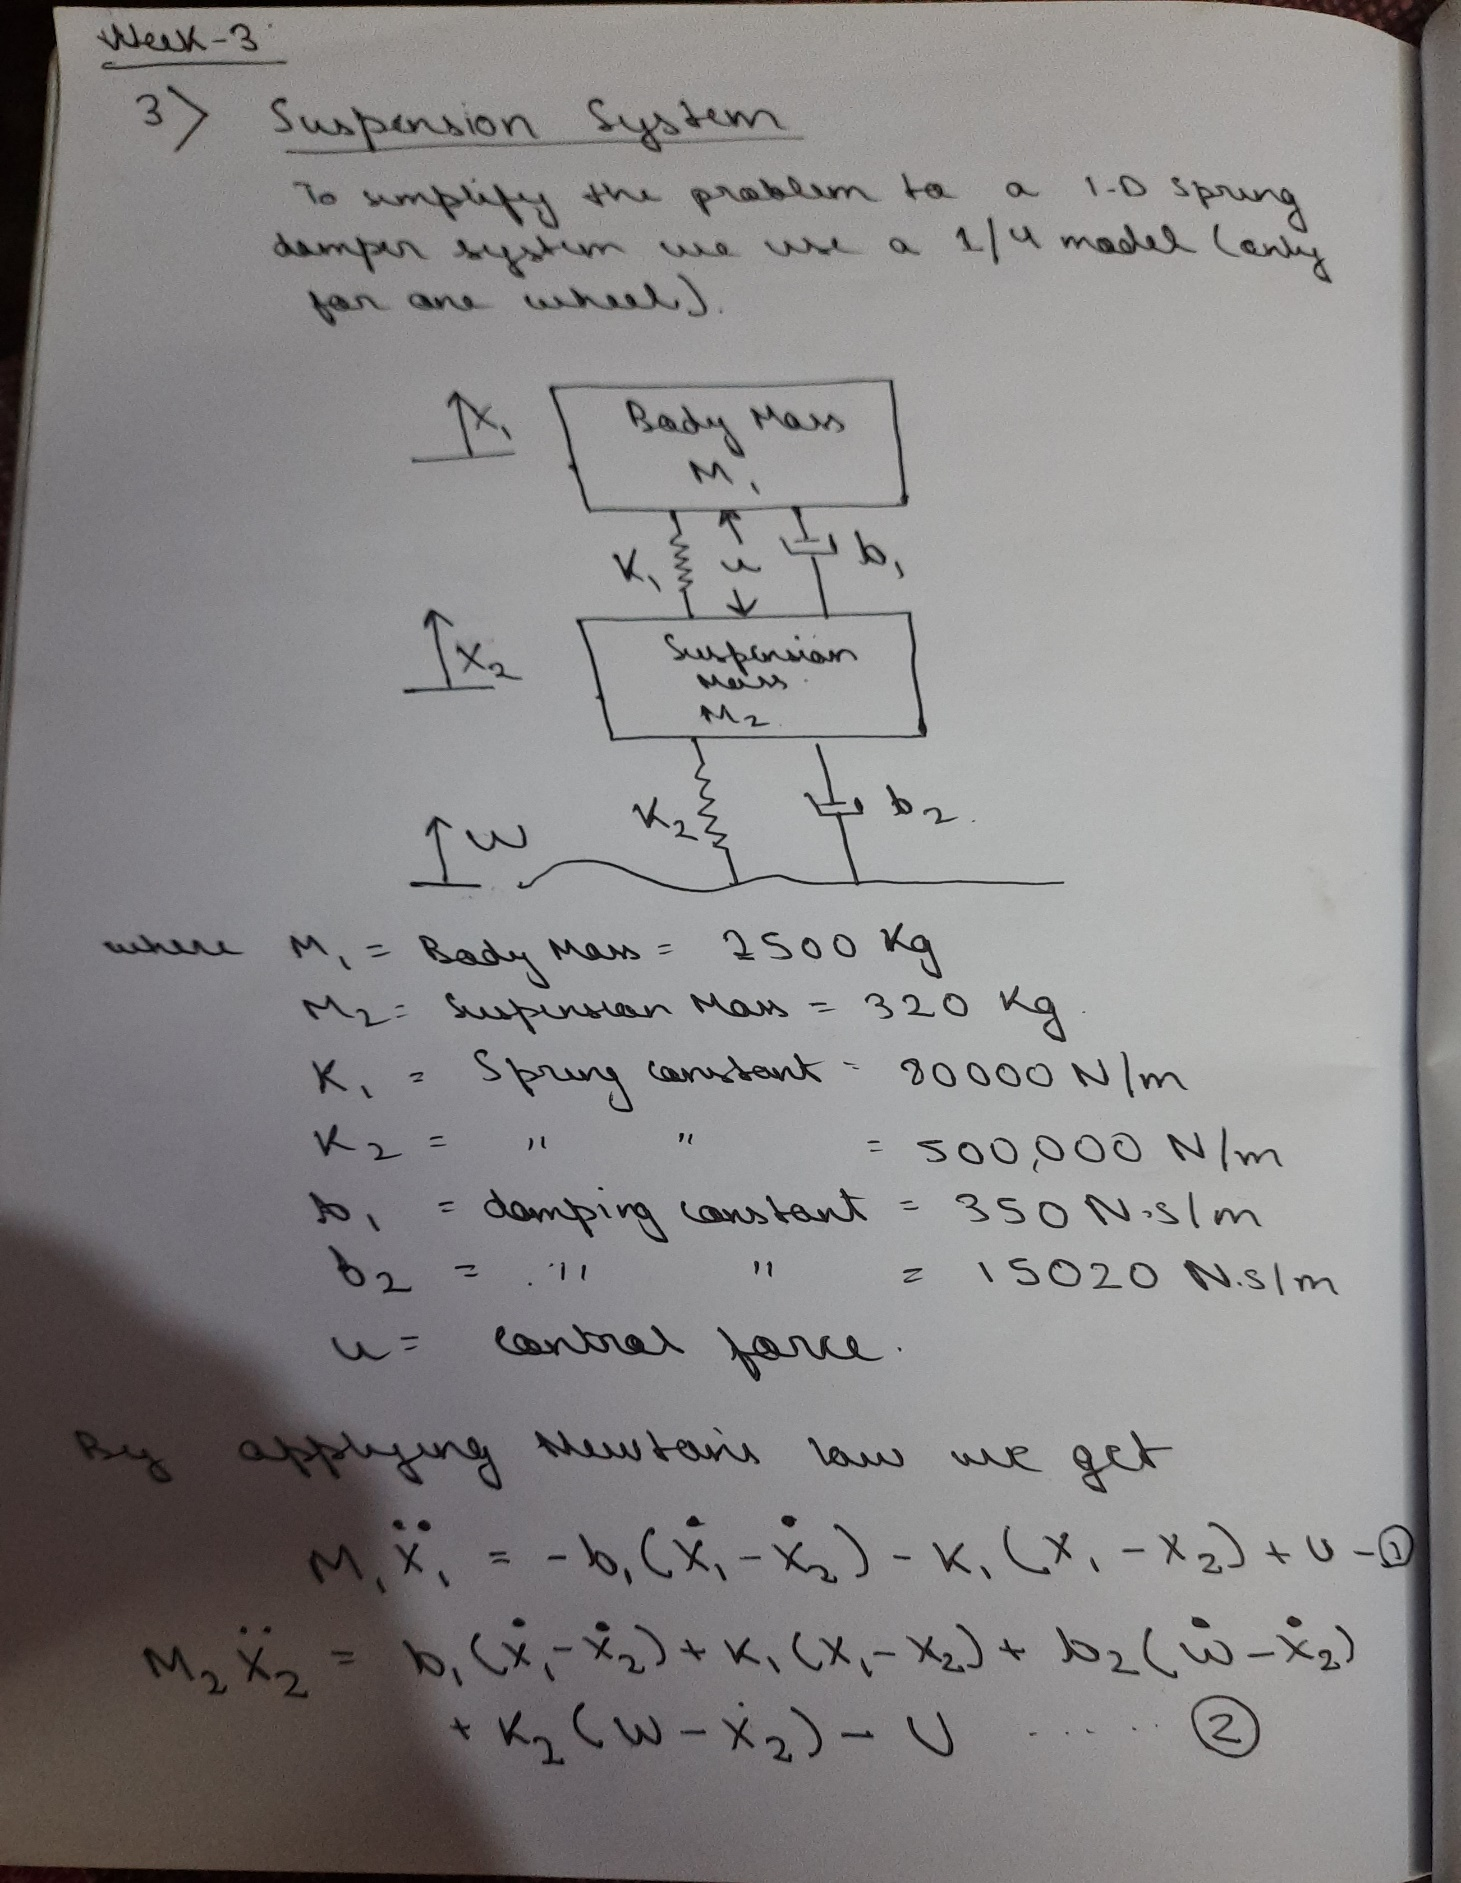 Week-3
3> Suspension System
To simplify the problem to a 1-D spring
damper system we use a 1/4 model (only
for one wheel).
X₁
Body Mass
M₁
K₁ u b₁
X₂
Suspension
Mass
M₂
K₂ b₂
W
where M₁ = Body Mass = 2500 Kg
M₂ = Suspension Mass = 320 Kg
K₁ = Spring constant = 80000 N/m
K₂ = " " = 500,000 N/m
b₁ = damping constant = 350 N.s/m
b₂ = " " = 15020 N.s/m
u = control force.
By applying Newton's law we get
M₁Ẍ₁ = -b₁(Ẋ₁-Ẋ₂) - K₁(X₁-X₂) + U - ①
M₂Ẍ₂ = b₁(Ẋ₁-Ẋ₂) + K₁(X₁-X₂) + b₂(Ẇ-Ẋ₂)
+ K₂(W-Ẋ₂) - U ...... ②